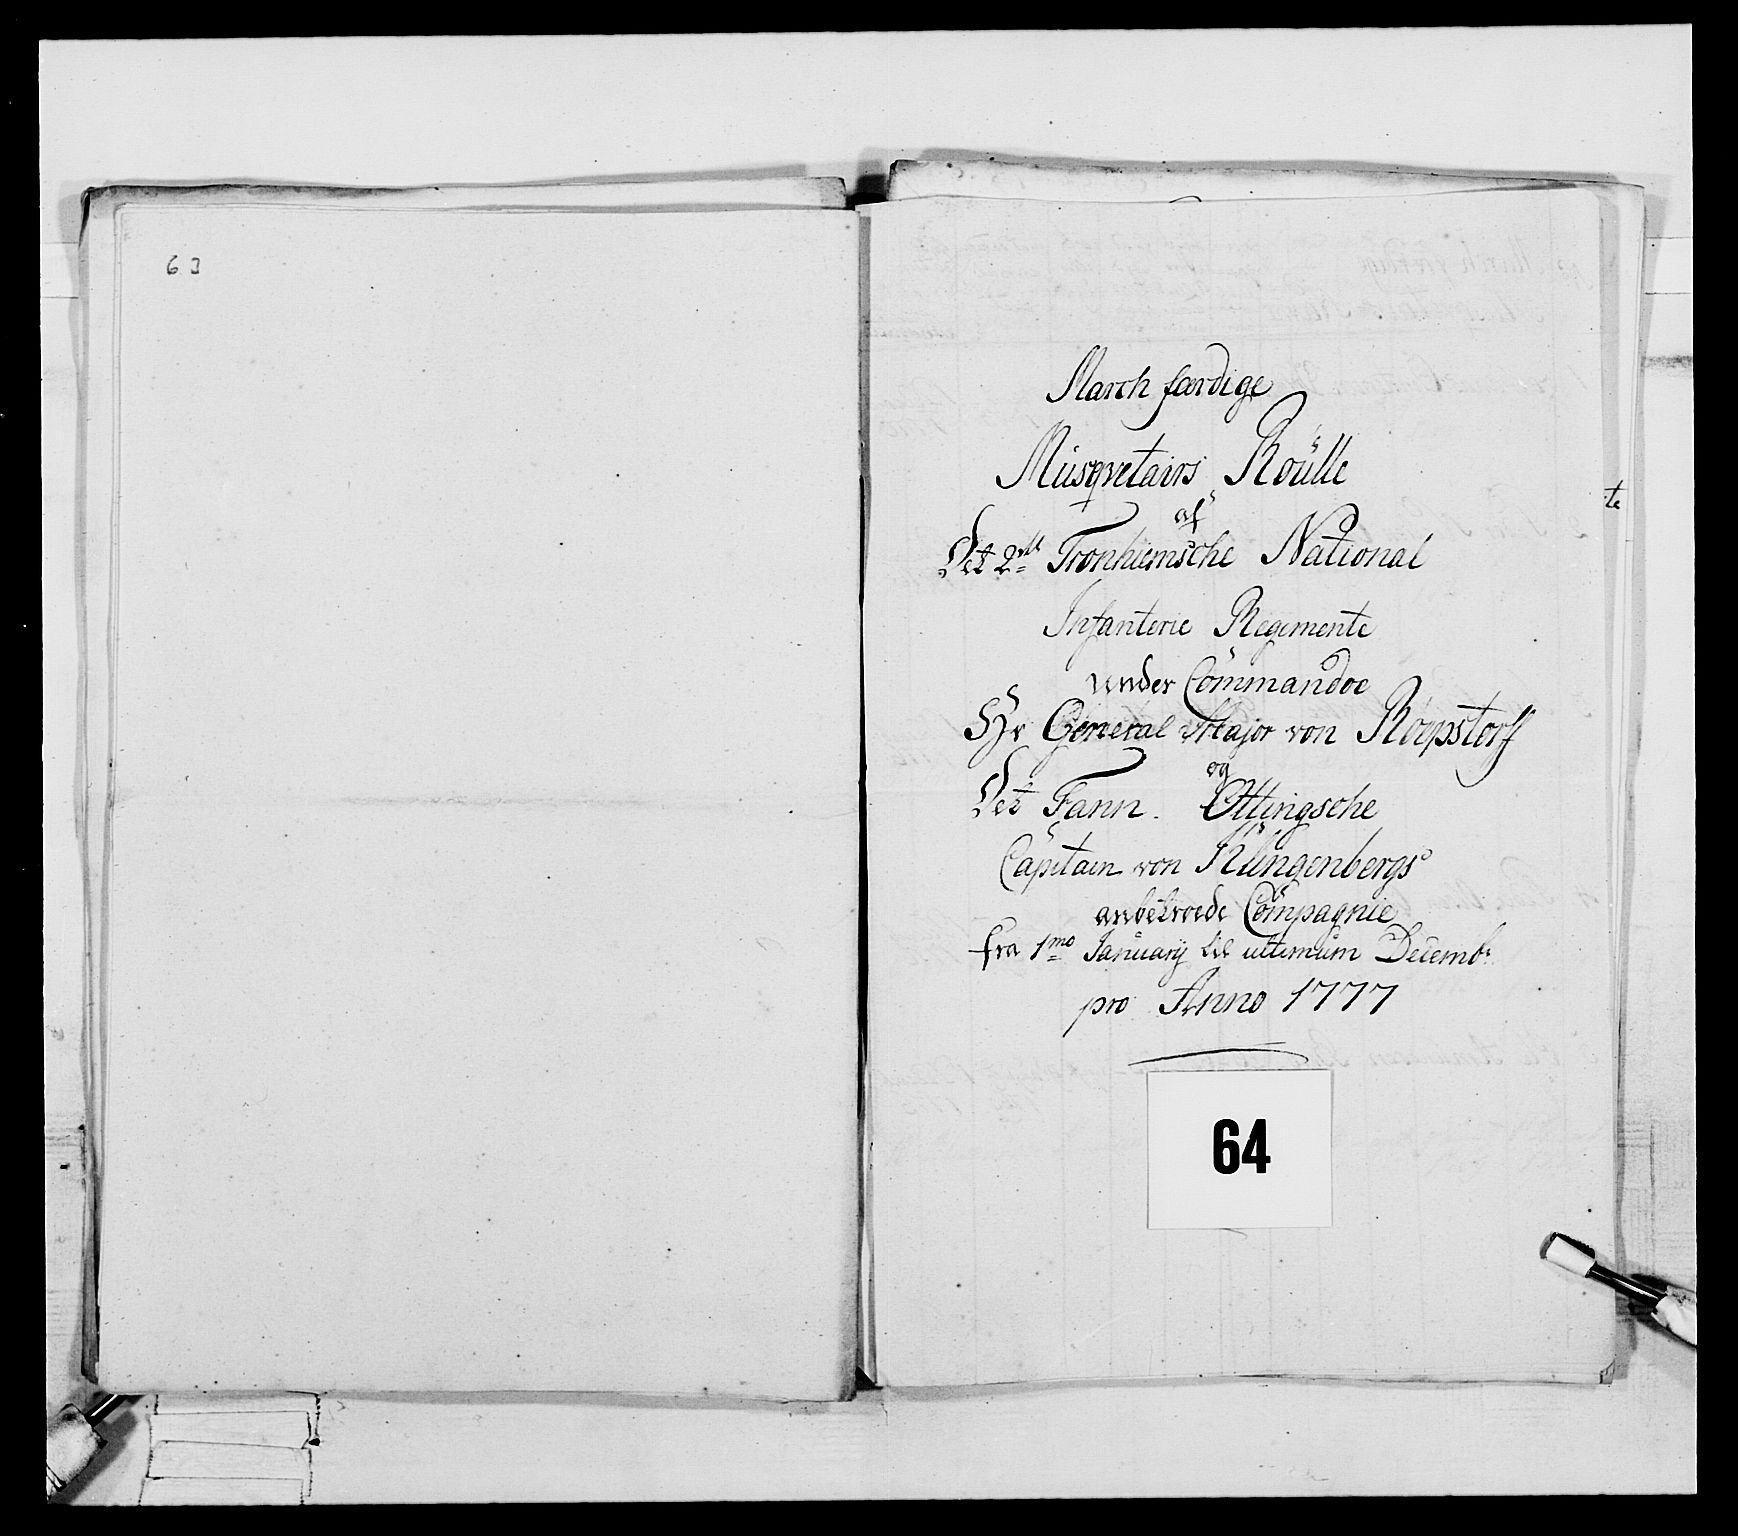 63
March færdige
Musqvetairs Roulle
af
Det 2det Tronhiemsche National
Infanterie Regemente
under Commandoe
Hr General Major von Röepstorff
og
Det Fann. Ottingsche
Capitain von Klingenbergs
anbetroede Compagnie
fra 1mo January til ultimum Decembr
pro Anno 1777
64
te